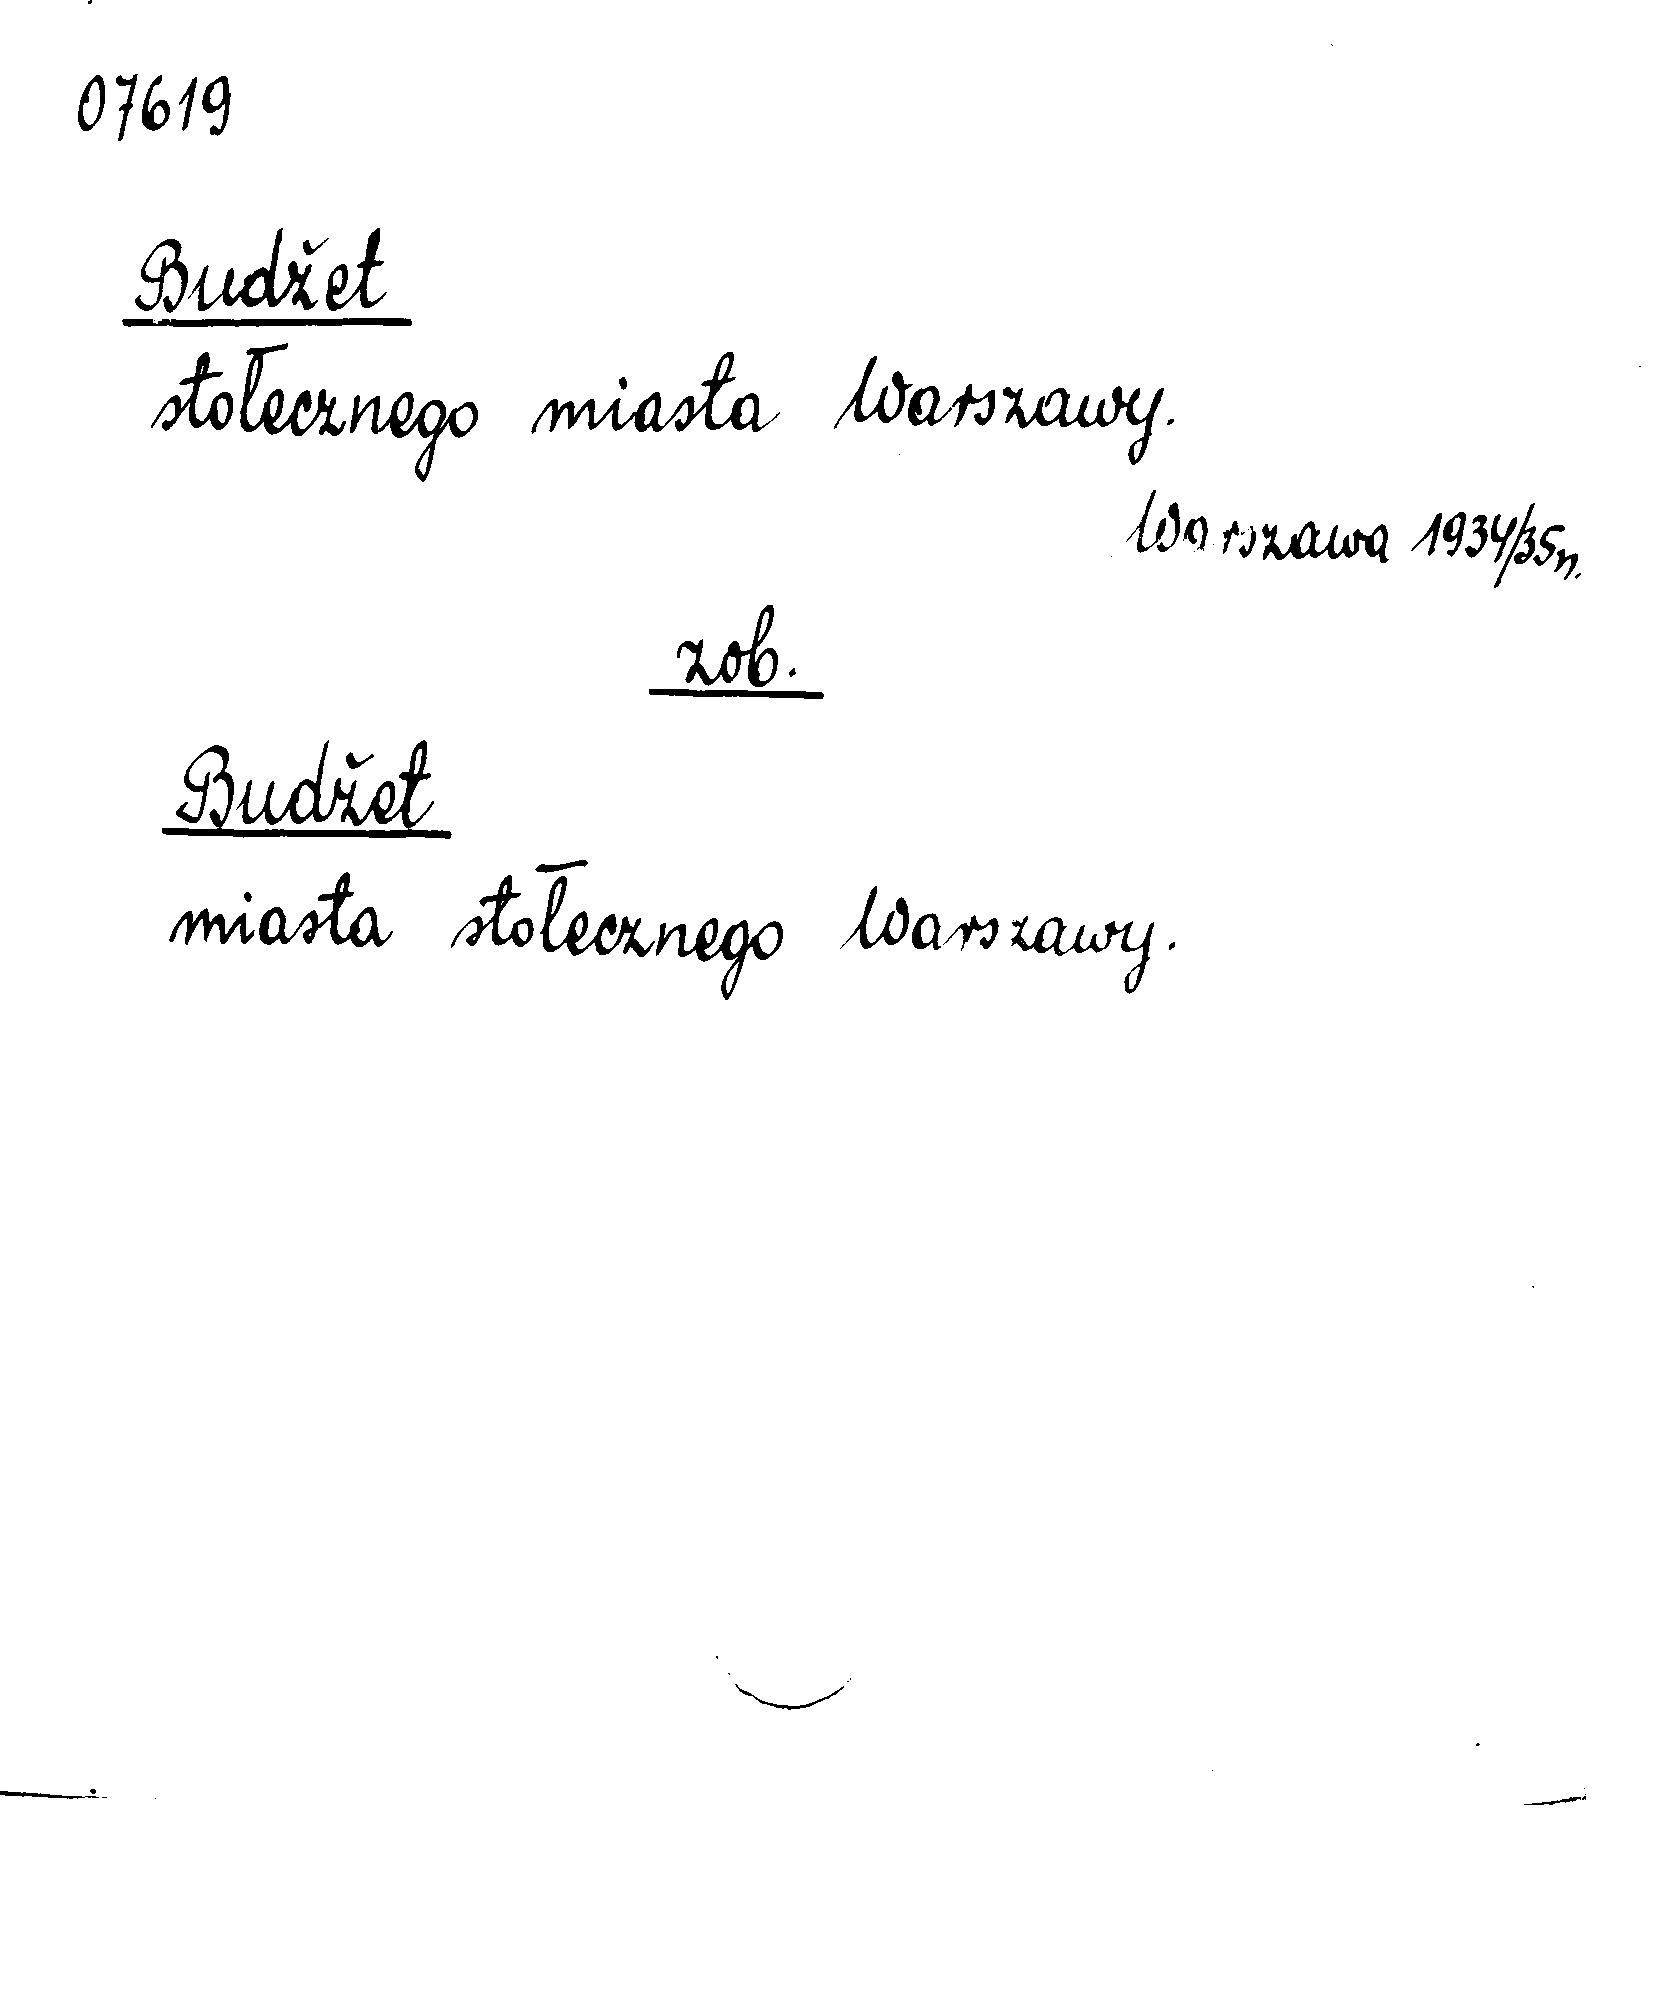 07619
Budżet
stołecznego miasta Warszawy.
Warszawa 1934/35n.
zob.
Budżet
miasta stołecznego Warszawy.